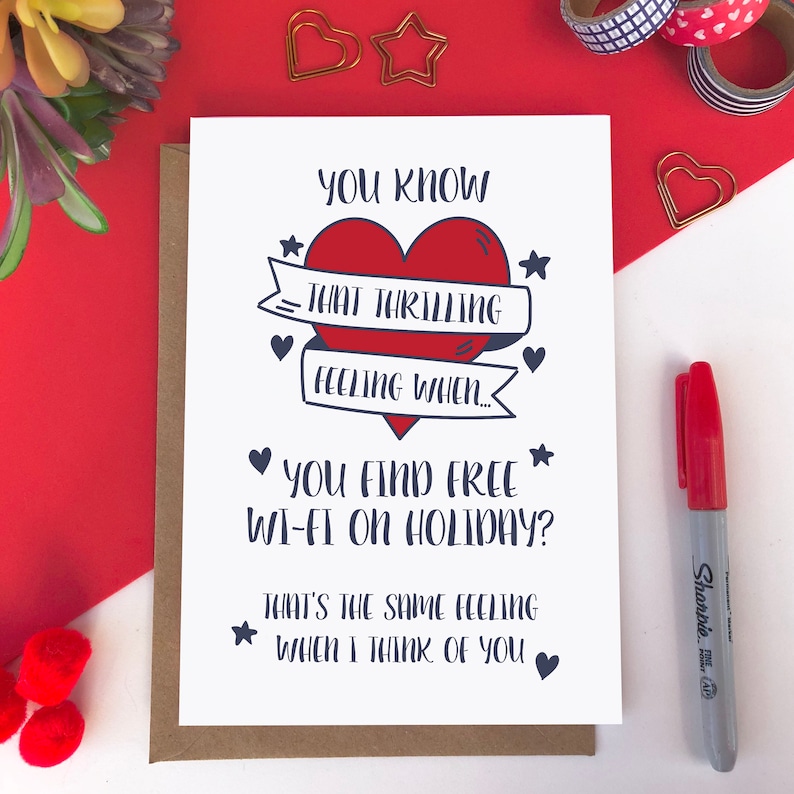 YOU KNOW
THAT THRILLING
FEELING WHEN...
YOU FIND FREE
WI-FI ON HOLIDAY?
THAT'S THE SAME FEELING
WHEN I THINK OF YOU
Sharpie.
FINE
POINT
Permanent Marker
AP